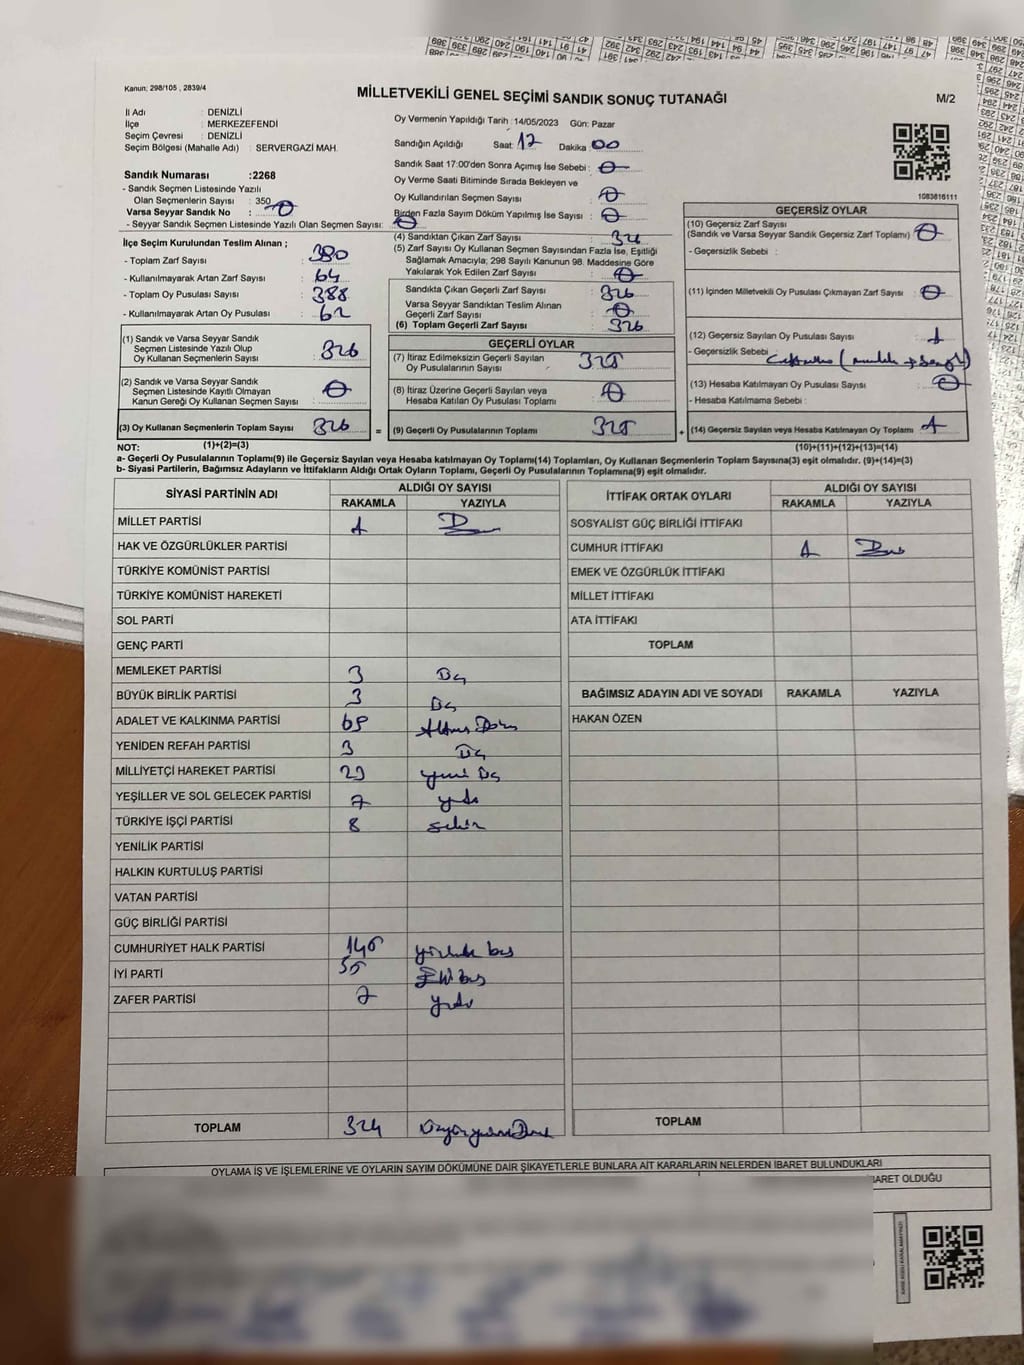 Kanun; 298/105 , 2839/4
MİLLETVEKİLİ GENEL SEÇİMİ SANDIK SONUÇ TUTANAĞI
M/2
İl Adı : DENİZLİ
İlçe : MERKEZEFENDİ
Seçim Çevresi : DENİZLİ
Seçim Bölgesi (Mahalle Adı) : SERVERGAZİ MAH.
Sandık Numarası :2268
- Sandık Seçmen Listesinde Yazılı
Olan Seçmenlerin Sayısı : 350
Varsa Seyyar Sandık No : 0
- Seyyar Sandık Seçmen Listesinde Yazılı Olan Seçmen Sayısı: 0
İlçe Seçim Kurulundan Teslim Alınan ;
- Toplam Zarf Sayısı : 380
- Kullanılmayarak Artan Zarf Sayısı : 64
- Toplam Oy Pusulası Sayısı : 388
- Kullanılmayarak Artan Oy Pusulası : 62
(1) Sandık ve Varsa Seyyar Sandık
Seçmen Listesinde Yazılı Olup
Oy Kullanan Seçmenlerin Sayısı : 326
(2) Sandık ve Varsa Seyyar Sandık
Seçmen Listesinde Kayıtlı Olmayan
Kanun Gereği Oy Kullanan Seçmen Sayısı : 0
(3) Oy Kullanan Seçmenlerin Toplam Sayısı : 326 =
Oy Vermenin Yapıldığı Tarih :14/05/2023 Gün: Pazar
Sandığın Açıldığı Saat: 17 Dakika : 00
Sandık Saat 17:00'den Sonra Açımış İse Sebebi : 0
Oy Verme Saati Bitiminde Sırada Bekleyen ve
Oy Kullandırılan Seçmen Sayısı : 0
Birden Fazla Sayım Döküm Yapılmış İse Sayısı : 0
(4) Sandıktan Çıkan Zarf Sayısı : 326
(5) Zarf Sayısı Oy Kullanan Seçmen Sayısından Fazla İse, Eşitliği
Sağlamak Amacıyla; 298 Sayılı Kanunun 98. Maddesine Göre
Yakılarak Yok Edilen Zarf Sayısı : 0
Sandıkta Çıkan Geçerli Zarf Sayısı : 326
Varsa Seyyar Sandıktan Teslim Alınan
Geçerli Zarf Sayısı : 0
(6) Toplam Geçerli Zarf Sayısı : 326
GEÇERLİ OYLAR
(7) İtiraz Edilmeksizin Geçerli Sayılan
Oy Pusulalarının Sayısı : 325
(8) İtiraz Üzerine Geçerli Sayılan veya
Hesaba Katılan Oy Pusulası Toplamı : 0
(9) Geçerli Oy Pusulalarının Toplamı : 325 +
1083816111
GEÇERSİZ OYLAR
(10) Geçersiz Zarf Sayısı
(Sandık ve Varsa Seyyar Sandık Geçersiz Zarf Toplamı) : 0
- Geçersizlik Sebebi :
(11) İçinden Milletvekili Oy Pusulası Çıkmayan Zarf Sayısı : 0
(12) Geçersiz Sayılan Oy Pusulası Sayısı : 1
- Geçersizlik Sebebi :
(13) Hesaba Katılmayan Oy Pusulası Sayısı : 0
- Hesaba Katılmama Sebebi :
(14) Geçersiz Sayılan veya Hesaba Katılmayan Oy Toplamı : 1
NOT: (1)+(2)=(3) (10)+(11)+(12)+(13)=(14)
a- Geçerli Oy Pusulaları Toplamı(9) ile Geçersiz Sayılan veya Hesaba katılmayan Oy Toplamı(14) Toplamları, Oy Kullanan Seçmenlerin Toplam Sayısına(3) eşit olmalıdır. (9)+(14)=(3)
b- Siyasi Partilerin, Bağımsız Adayların ve İttifakların Aldığı Ortak Oyların Toplamı, Geçerli Oy Pusulalarının Toplamına(9) eşit olmalıdır.
SİYASİ PARTİNİN ADI ALDIĞI OY SAYISI
RAKAMLA YAZIYLA
MİLLET PARTİSİ 1 Bir
HAK VE ÖZGÜRLÜKLER PARTİSİ
TÜRKİYE KOMÜNİST PARTİSİ
TÜRKİYE KOMÜNİST HAREKETİ
SOL PARTİ
GENÇ PARTİ
MEMLEKET PARTİSİ 3 Üç
BÜYÜK BİRLİK PARTİSİ 3 Üç
ADALET VE KALKINMA PARTİSİ 69
YENİDEN REFAH PARTİSİ 3 Üç
MİLLİYETÇİ HAREKET PARTİSİ 23 yirmi Üç
YEŞİLLER VE SOL GELECEK PARTİSİ 7 yedi
TÜRKİYE İŞÇİ PARTİSİ 8 sekiz
YENİLİK PARTİSİ
HALKIN KURTULUŞ PARTİSİ
VATAN PARTİSİ
GÜÇ BİRLİĞİ PARTİSİ
CUMHURİYET HALK PARTİSİ 145 yüzkırk beş
İYİ PARTİ 55 Elli beş
ZAFER PARTİSİ 7 yedi
TOPLAM 324
İTTİFAK ORTAK OYLARI ALDIĞI OY SAYISI
RAKAMLA YAZIYLA
SOSYALİST GÜÇ BİRLİĞİ İTTİFAKI
CUMHUR İTTİFAKI 1 Bir
EMEK VE ÖZGÜRLÜK İTTİFAKI
MİLLET İTTİFAKI
ATA İTTİFAKI
TOPLAM
BAĞIMSIZ ADAYIN ADI VE SOYADI RAKAMLA YAZIYLA
HAKAN ÖZEN
TOPLAM
OYLAMA İŞ VE İŞLEMLERİNE VE OYLARIN SAYIM DÖKÜMÜNE DAİR ŞİKAYETLERLE BUNLARA AİT KARARLARIN NELERDEN İBARET BULUNDUKLARI
BARET OLDUĞU